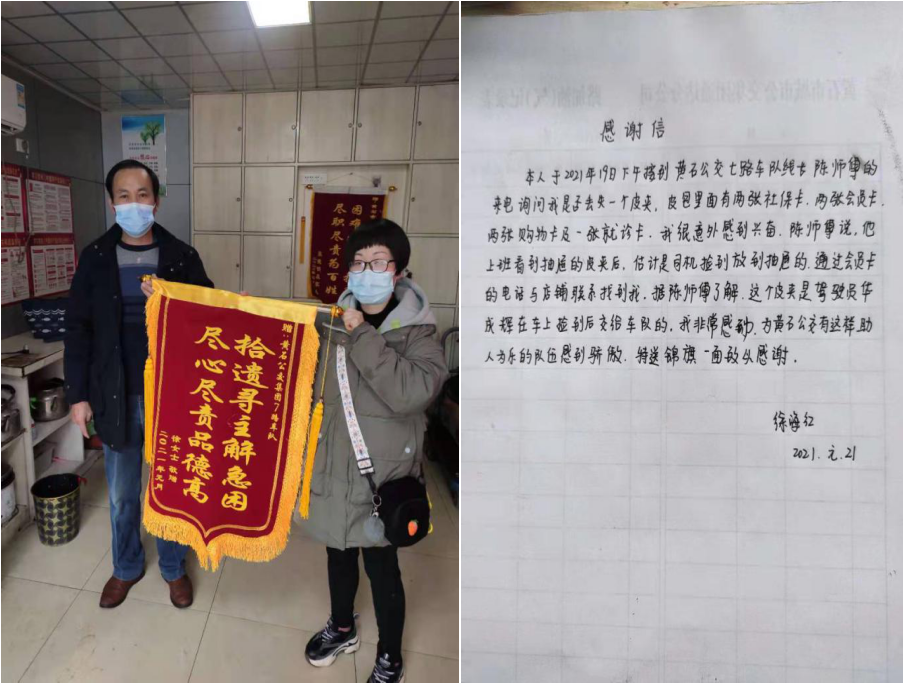 赠：黄石公交集团7路车队
拾遗寻主解急困
尽心尽责品德高
徐女士 敬赠
二〇二一年元月
尽职尽责为百姓
感谢信
本人于2021年19日下午接到黄石公交七路车队组长陈师傅的
来电询问我是否丢失一个皮夹，皮包里面有两张社保卡．两张会员卡．
两张购物卡及一张就诊卡．我很意外感到兴奋．陈师傅说，他
上班看到抽屉的皮夹后，估计是司机捡到放到抽屉的．通过会员卡
的电话与店铺联系找到我．据陈师傅了解．这个皮夹是驾驶员华
成辉在车上捡到后交给车队的，我非常感动，为黄石公交有这样助
人为乐的队伍感到骄傲．特送锦旗一面致以感谢．
徐海红
2021.元.21